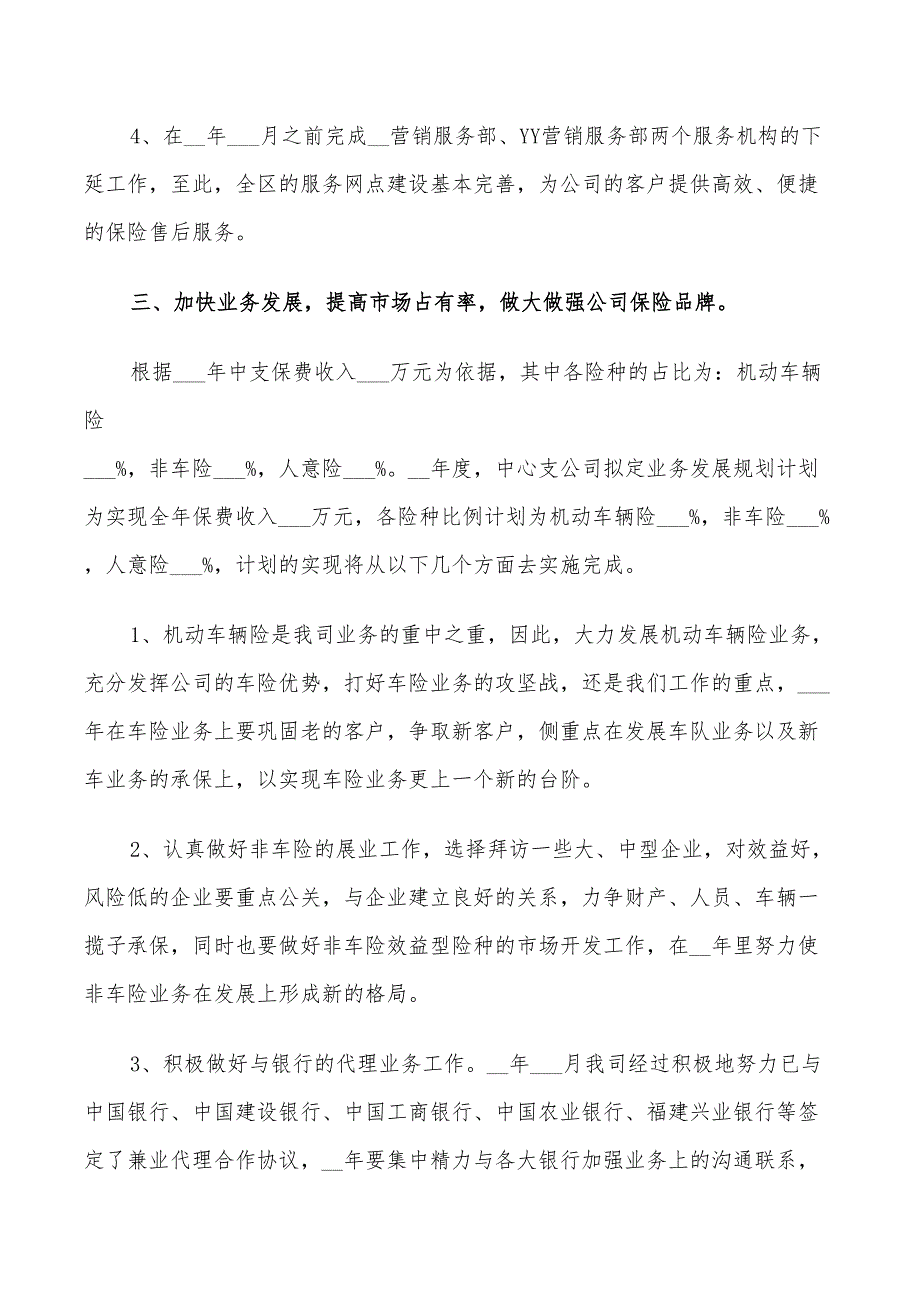 4、在__年___月之前完成__营销服务部、YY营销服务部两个服务机构的下
延工作，至此，全区的服务网点建设基本完善，为公司的客户提供高效、便捷
的保险售后服务。
三、加快业务发展，提高市场占有率，做大做强公司保险品牌。
根据___年中支保费收入___万元为依据，其中各险种的占比为：机动车辆
险
___%，非车险___%，人意险___%。__年度，中心支公司拟定业务发展规划计划
为实现全年保费收入___万元，各险种比例计划为机动车辆险___%，非车险___%
，人意险___%，计划的实现将从以下几个方面去实施完成。
1、机动车辆险是我司业务的重中之重，因此，大力发展机动车辆险业务，
充分发挥公司的车险优势，打好车险业务的攻坚战，还是我们工作的重点，___
年在车险业务上要巩固老的客户，争取新客户，侧重点在发展车队业务以及新
车业务的承保上，以实现车险业务更上一个新的台阶。
2、认真做好非车险的展业工作，选择拜访一些大、中型企业，对效益好，
风险低的企业要重点公关，与企业建立良好的关系，力争财产、人员、车辆一
揽子承保，同时也要做好非车险效益型险种的市场开发工作，在__年里努力使
非车险业务在发展上形成新的格局。
3、积极做好与银行的代理业务工作。__年___月我司经过积极地努力已与
中国银行、中国建设银行、中国工商银行、中国农业银行、福建兴业银行等签
定了兼业代理合作协议，__年要集中精力与各大银行加强业务上的沟通联系，